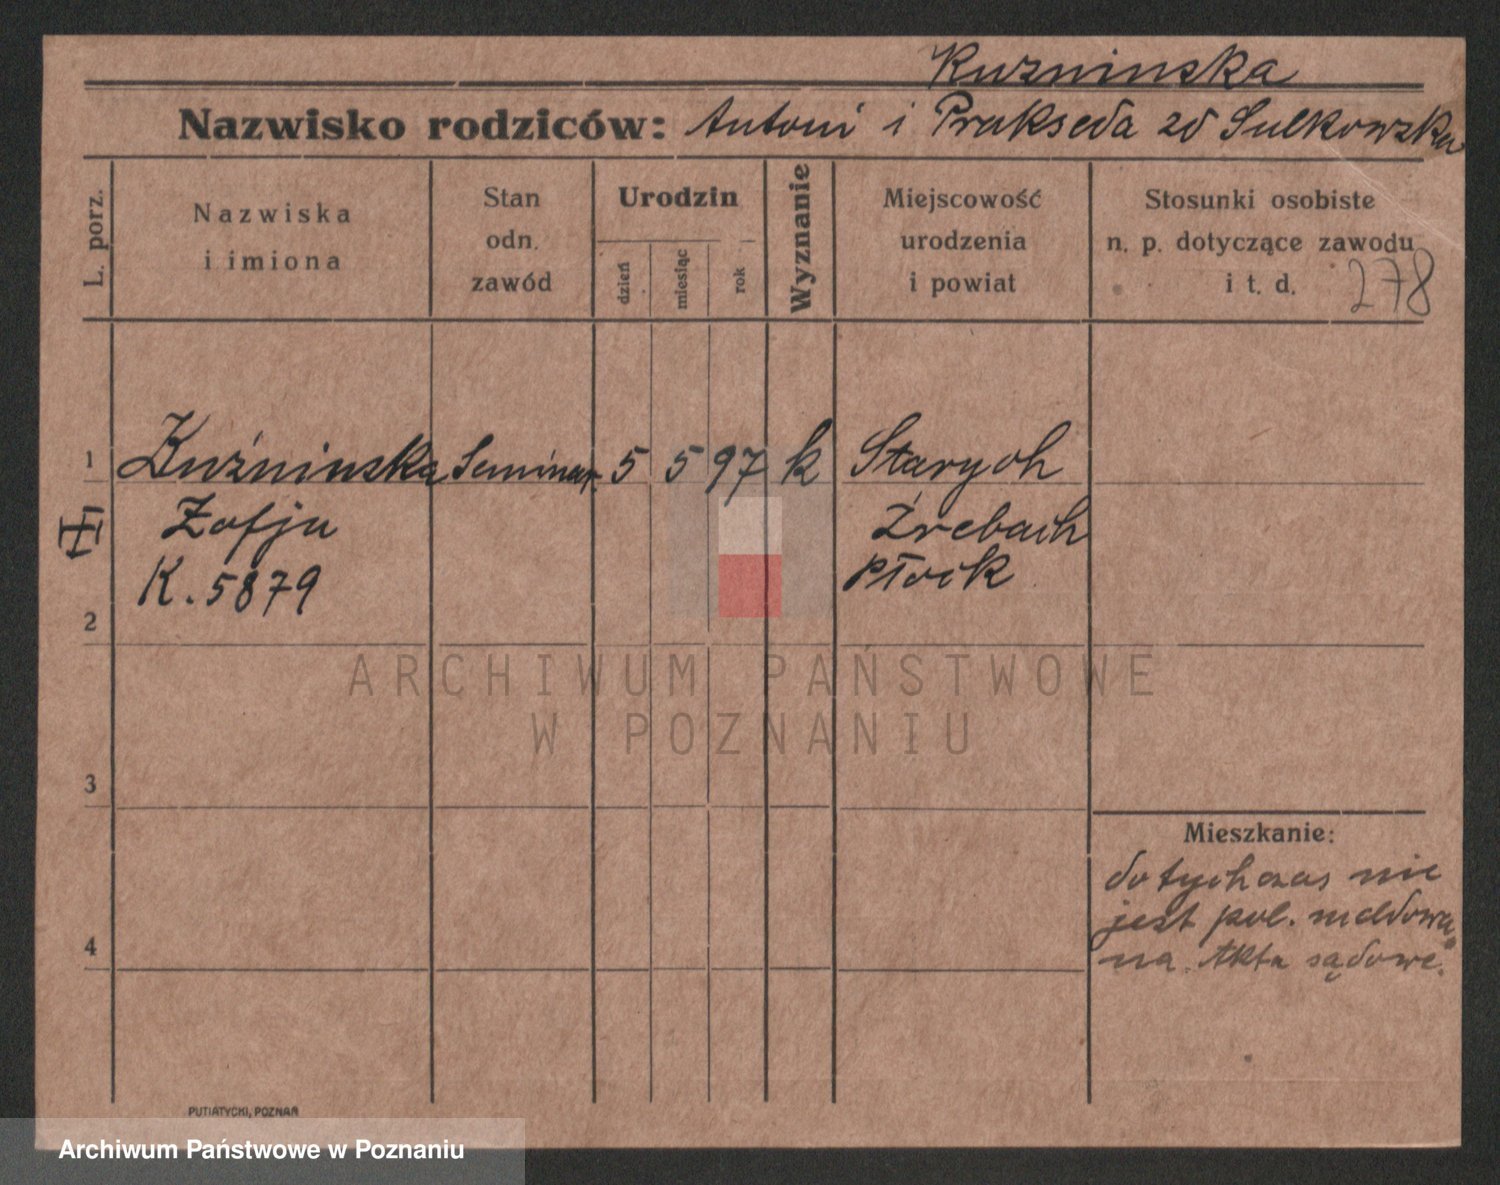 Kuzninska
Nazwisko rodziców: Antoni i Prakseda zd Sulkowska
L. porz.
Nazwiska
i imiona
Stan
odn.
zawód
Urodzin
dzień
miesiąc
rok
Wyznanie
Miejscowość
urodzenia
i powiat
Stosunki osobiste
n. p. dotyczące zawodu
i t. d.
278
1 Kuźninska Seminar. 5 5 97 k Starych
III Zofja Źrebach
K. 5879 Płock
2
ARCHIWUM PAŃSTWOWE
W POZNANIU
3
Mieszkanie:
dotychczas nie
jest pol. meldowa
na. Akta sądowe.
4
PUTIATYCKI, POZNAŃ
Archiwum Państwowe w Poznaniu